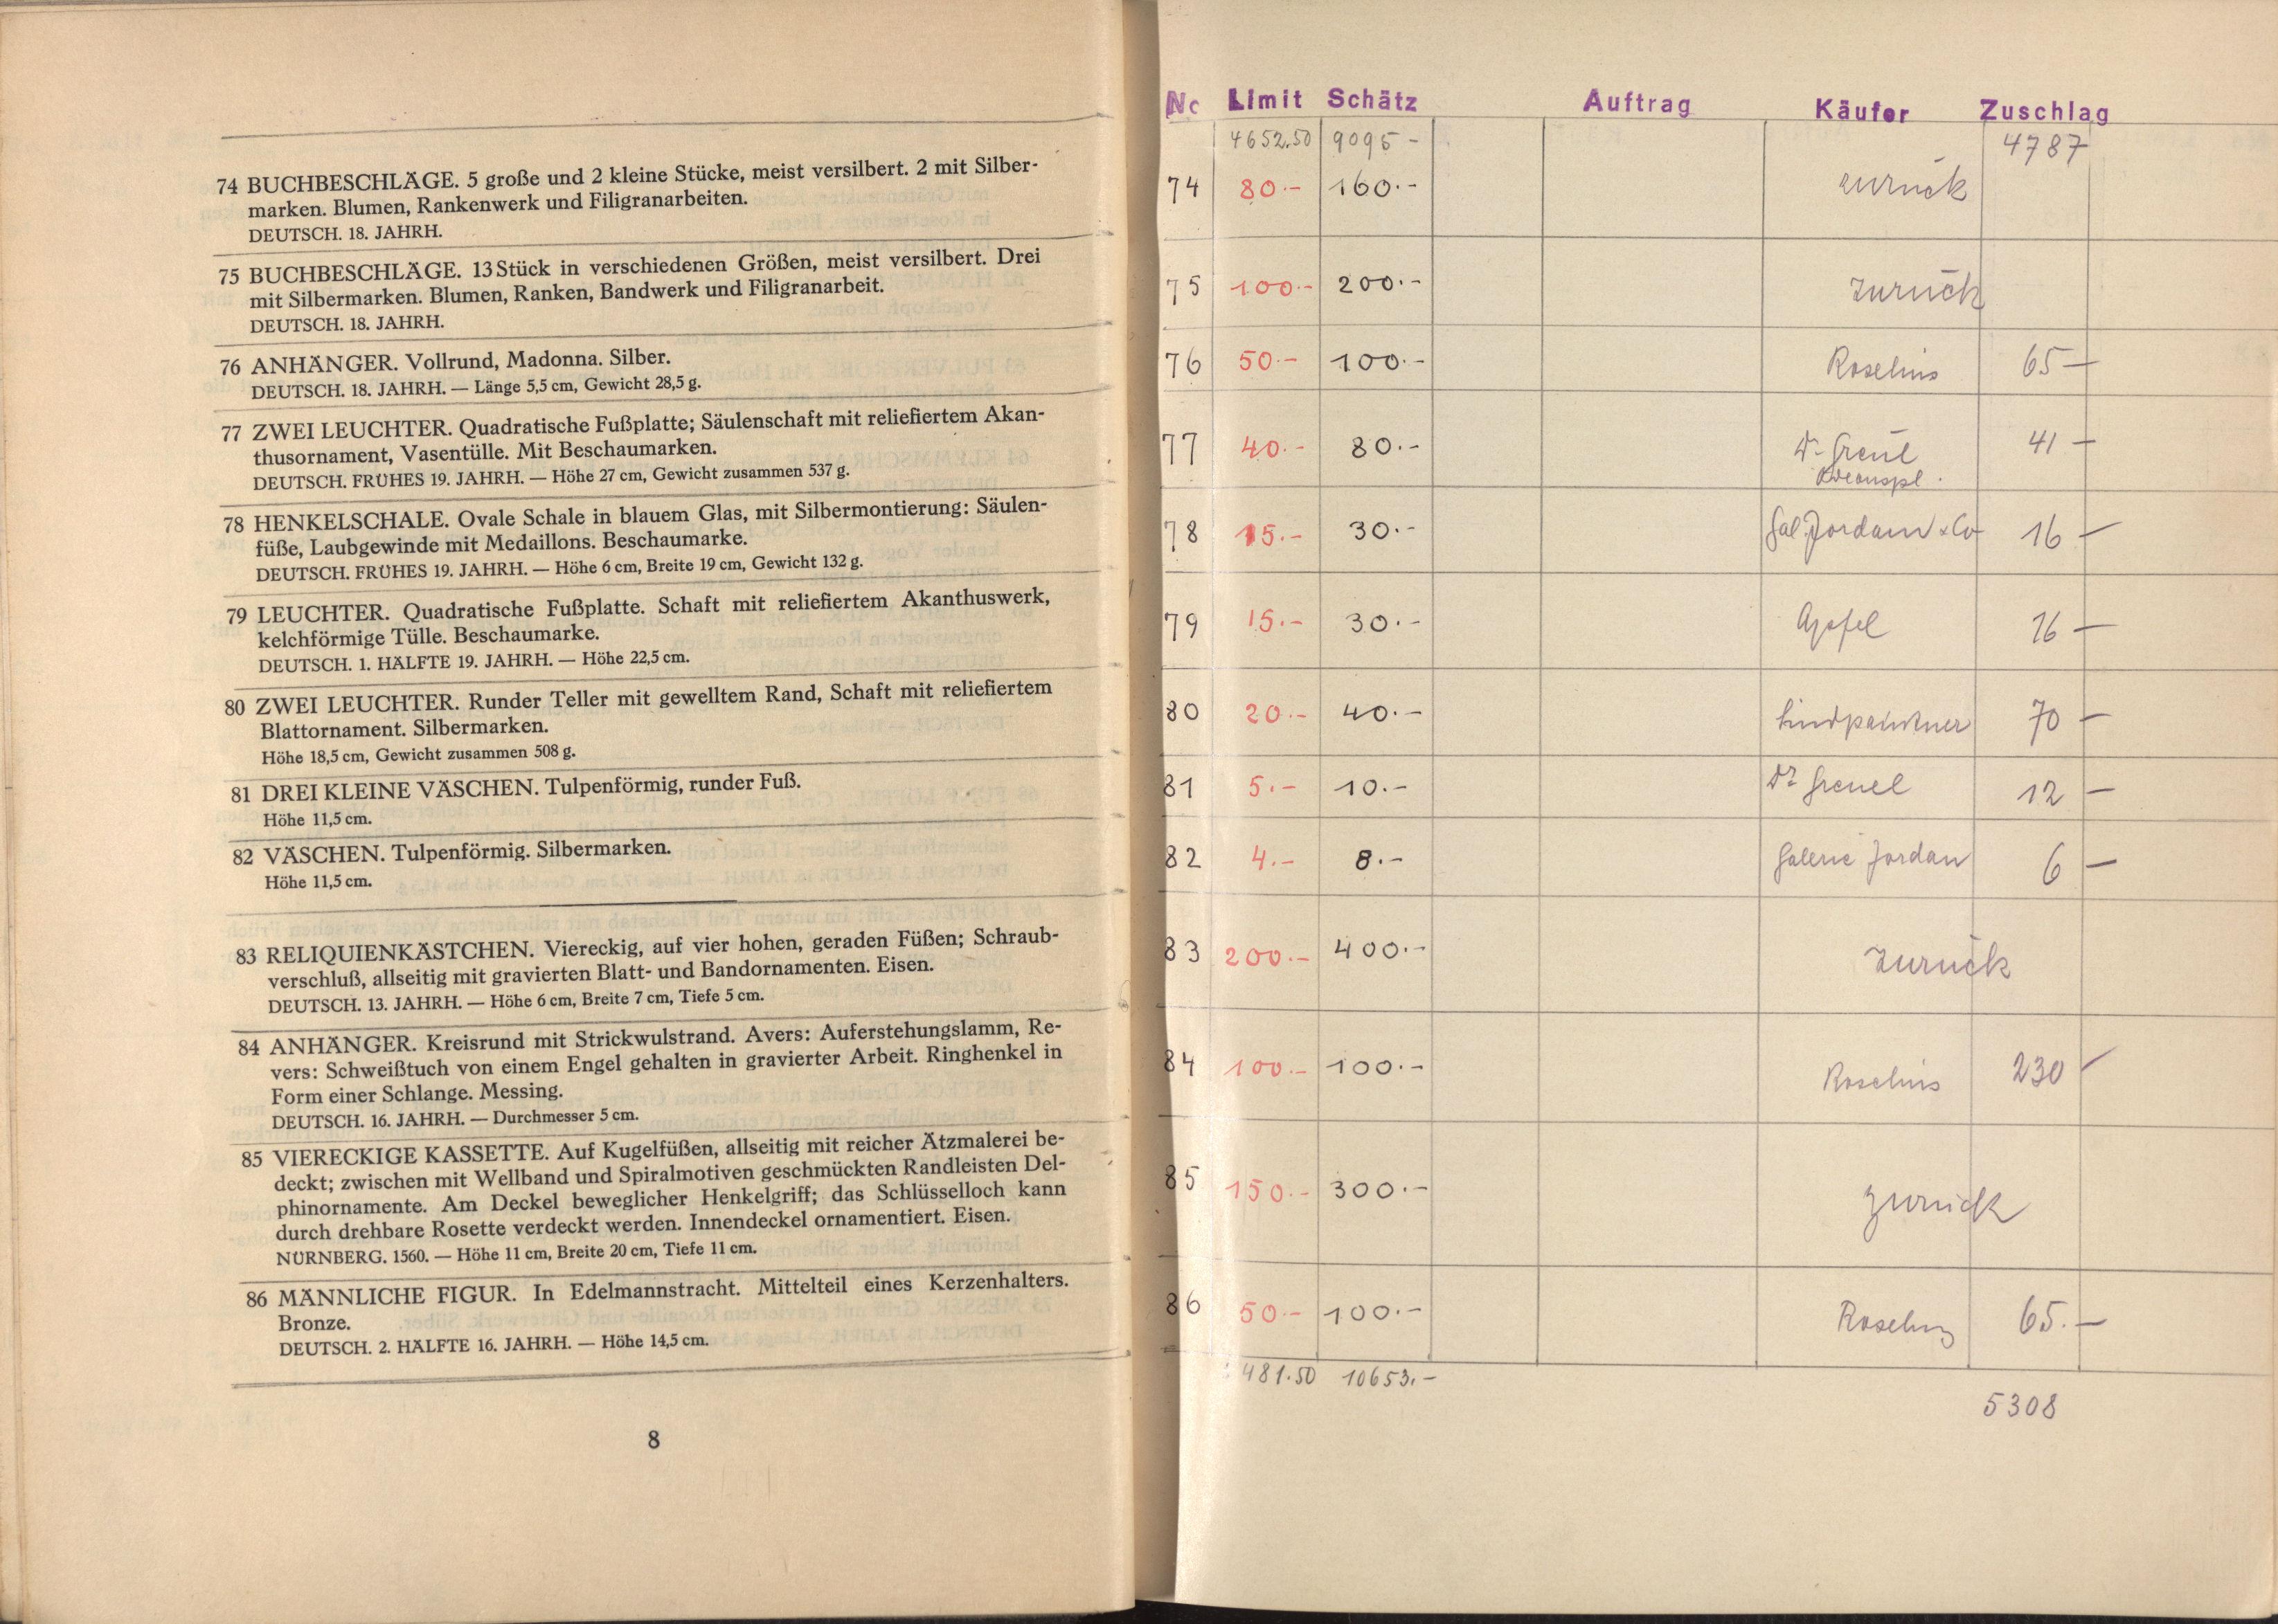 74 BUCHBESCHLÄGE. 5 große und 2 kleine Stücke, meist versilbert. 2 mit Silber-
marken. Blumen, Rankenwerk und Filigranarbeiten.
DEUTSCH. 18. JAHRH.
75 BUCHBESCHLÄGE. 13 Stück in verschiedenen Größen, meist versilbert. Drei
mit Silbermarken. Blumen, Ranken, Bandwerk und Filigranarbeit.
DEUTSCH. 18. JAHRH.
76 ANHÄNGER. Vollrund, Madonna. Silber.
DEUTSCH. 18. JAHRH. — Länge 5,5 cm, Gewicht 28,5 g.
77 ZWEI LEUCHTER. Quadratische Fußplatte; Säulenschaft mit reliefiertem Akan-
thusornament, Vasentülle. Mit Beschaumarken.
DEUTSCH. FRÜHES 19. JAHRH. — Höhe 27 cm, Gewicht zusammen 537 g.
78 HENKELSCHALE. Ovale Schale in blauem Glas, mit Silbermontierung: Säulen-
füße, Laubgewinde mit Medaillons. Beschaumarke.
DEUTSCH. FRÜHES 19. JAHRH. — Höhe 6 cm, Breite 19 cm, Gewicht 132 g.
79 LEUCHTER. Quadratische Fußplatte. Schaft mit reliefiertem Akanthuswerk,
kelchförmige Tülle. Beschaumarke.
DEUTSCH. 1. HÄLFTE 19. JAHRH. — Höhe 22,5 cm.
80 ZWEI LEUCHTER. Runder Teller mit gewelltem Rand, Schaft mit reliefiertem
Blattornament. Silbermarken.
Höhe 18,5 cm, Gewicht zusammen 508 g.
81 DREI KLEINE VÄSCHEN. Tulpenförmig, runder Fuß.
Höhe 11,5 cm.
82 VÄSCHEN. Tulpenförmig. Silbermarken.
Höhe 11,5 cm.
83 RELIQUIENKÄSTCHEN. Viereckig, auf vier hohen, geraden Füßen; Schraub-
verschluß, allseitig mit gravierten Blatt- und Bandornamenten. Eisen.
DEUTSCH. 13. JAHRH. — Höhe 6 cm, Breite 7 cm, Tiefe 5 cm.
84 ANHÄNGER. Kreisrund mit Strickwulstrand. Avers: Auferstehungslamm, Re-
vers: Schweißtuch von einem Engel gehalten in gravierter Arbeit. Ringhenkel in
Form einer Schlange. Messing.
DEUTSCH. 16. JAHRH. — Durchmesser 5 cm.
85 VIERECKIGE KASSETTE. Auf Kugelfüßen, allseitig mit reicher Ätzmalerei be-
deckt; zwischen mit Wellband und Spiralmotiven geschmückten Randleisten Del-
phinornamente. Am Deckel beweglicher Henkelgriff; das Schlüsselloch kann
durch drehbare Rosette verdeckt werden. Innendeckel ornamentiert. Eisen.
NÜRNBERG. 1560. — Höhe 11 cm, Breite 20 cm, Tiefe 11 cm.
86 MÄNNLICHE FIGUR. In Edelmannstracht. Mittelteil eines Kerzenhalters.
Bronze.
DEUTSCH. 2. HÄLFTE 16. JAHRH. — Höhe 14,5 cm.
8
No Limit Schätz Auftrag Käufer Zuschlag
4652.50 9095 - 4787
74 80.- 160.- zurück
75 100.- 200.- zurück
76 50.- 100.- Roselius 65 -
77 40.- 80.- Dr Greul 41 -
78 15.- 30.- Gal. Jordan & Co 16 -
79 15.- 30.- Apfel 16 -
80 20.- 40.- Lindpaintner 70 -
81 5.- 10.- Dr Greuel 12 -
82 4.- 8.- Galerie Jordan 6 -
83 200.- 400.- zurück
84 100.- 100.- Roselius 230 -
85 150.- 300.- zurück
86 50.- 100.- Roselius 65.-
481.50 10653.-
5308